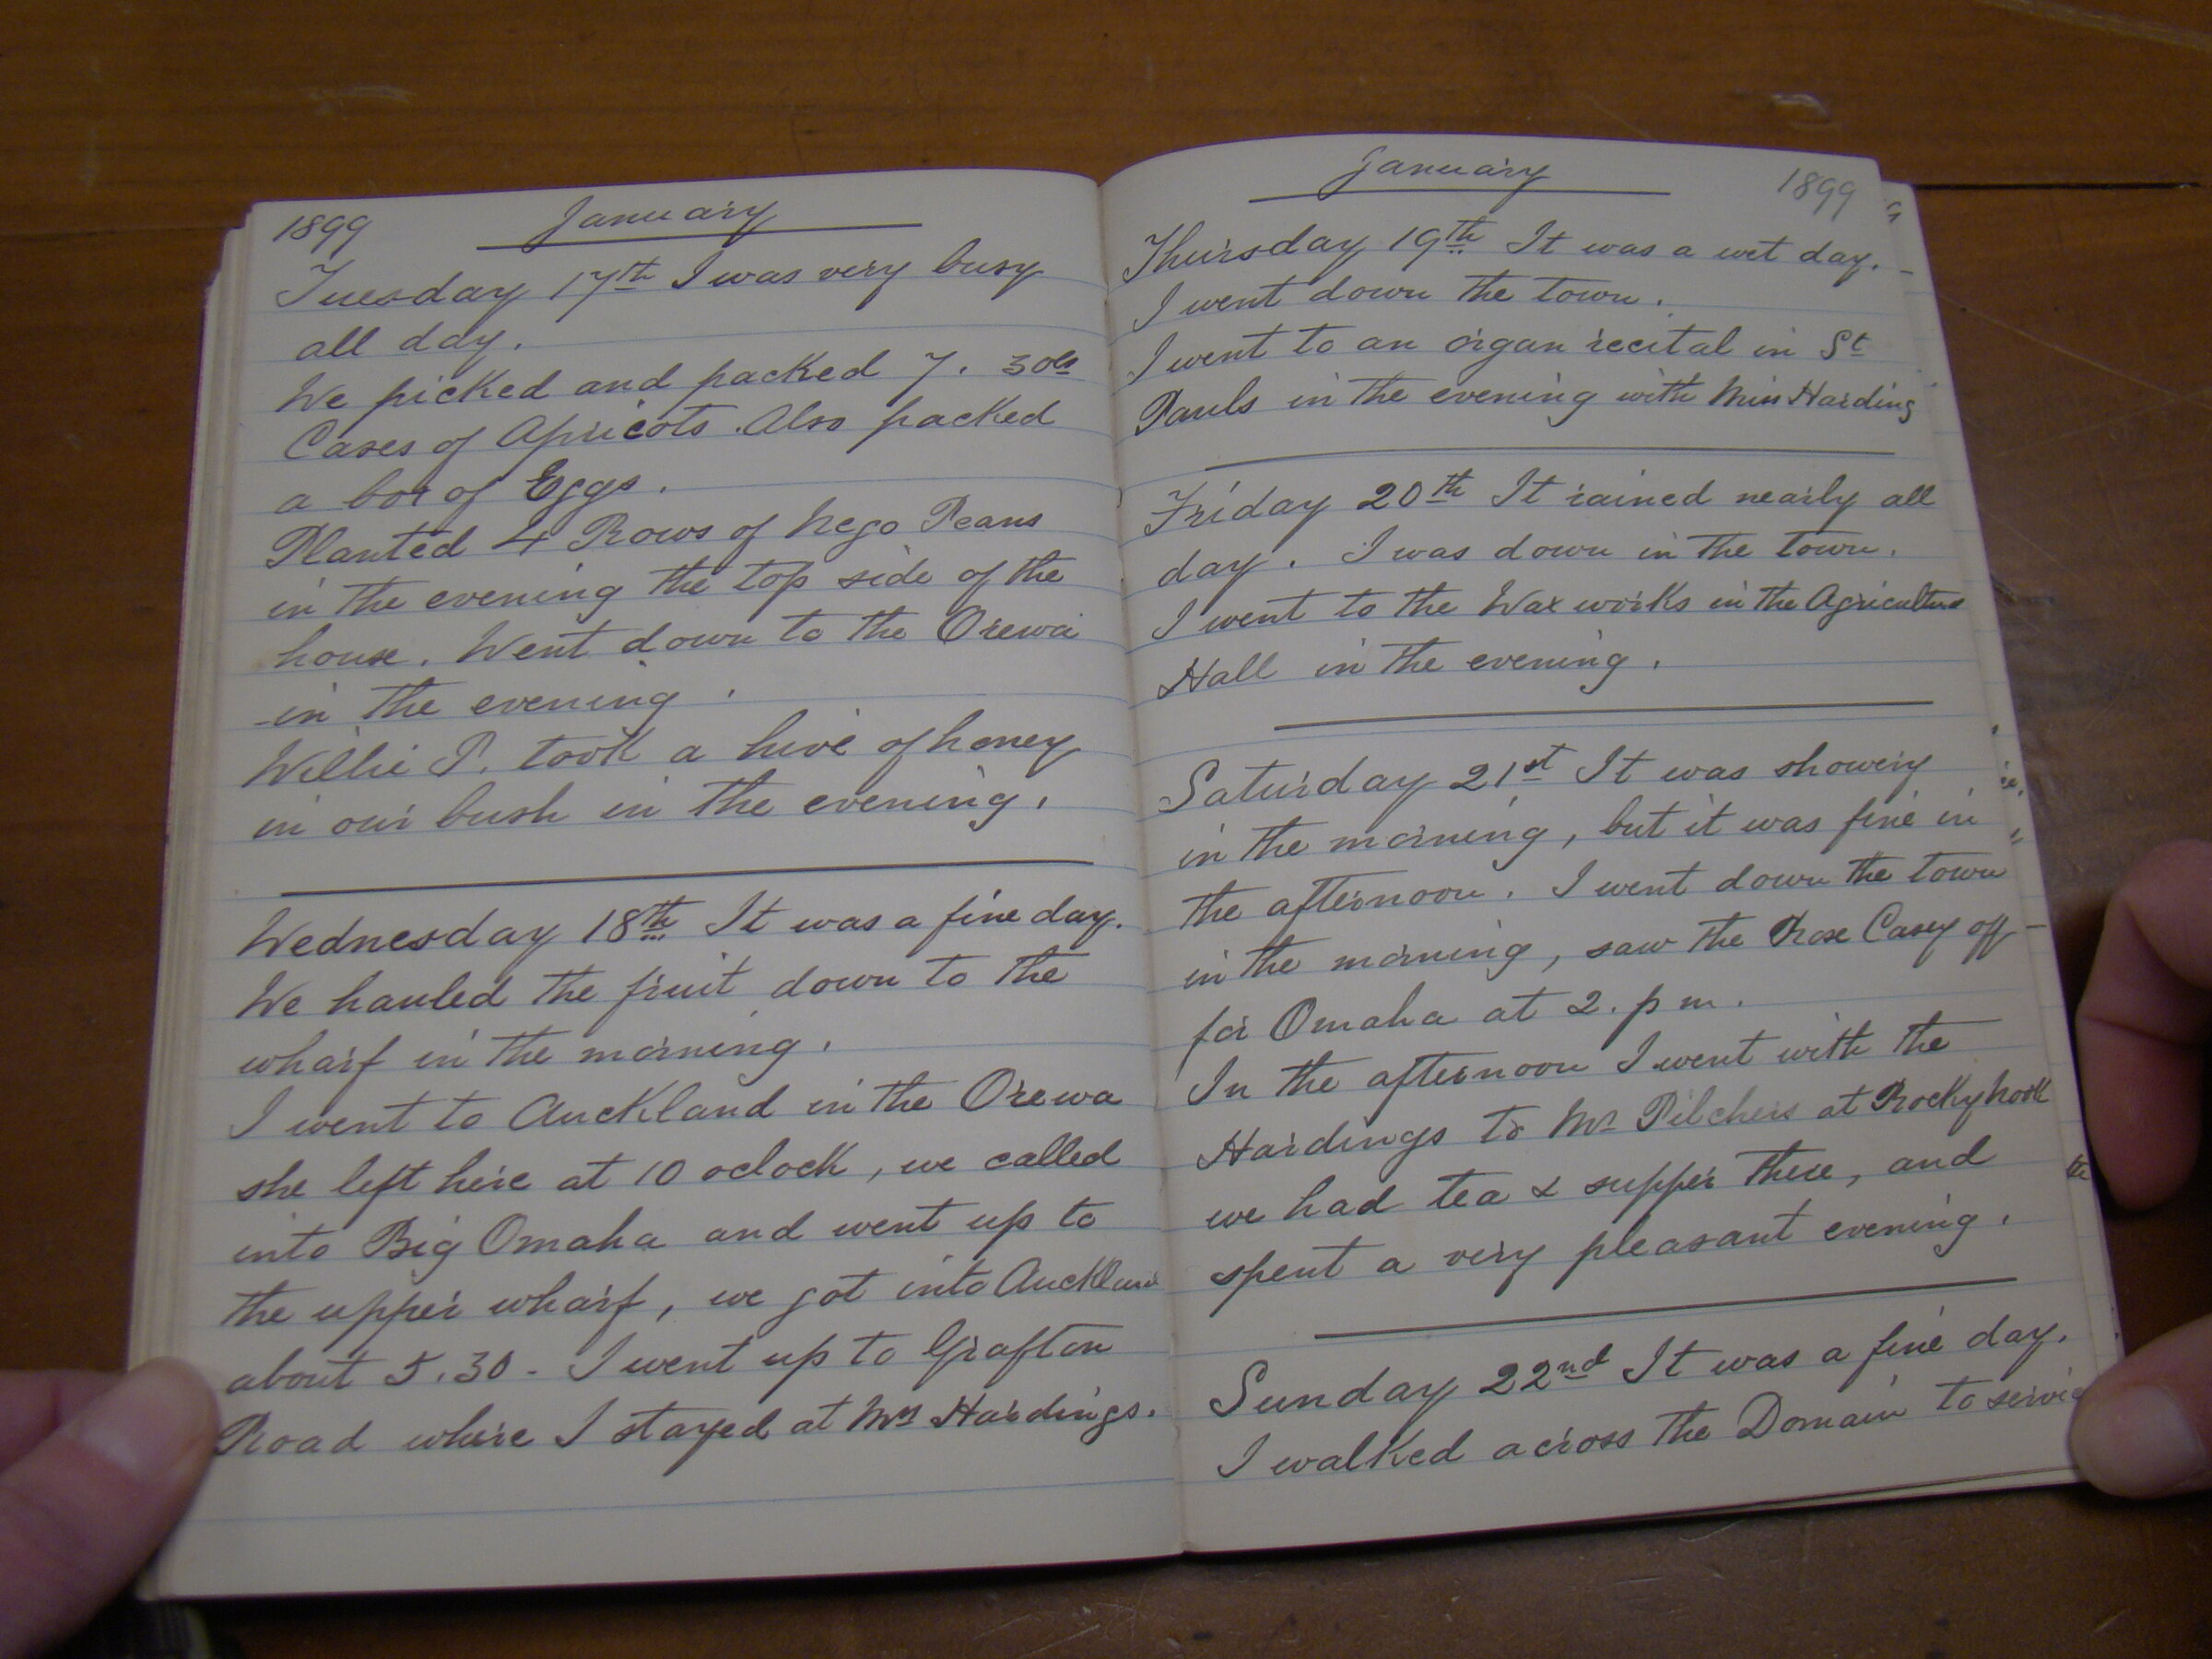 1899 January
Tuesday 17th I was very busy
all day.
We picked and packed 7. 30lb
Cases of Apricots. Also packed
a box of Eggs.
Planted 4 Rows of Nego Peans
in the evening the top side of the
house. Went down to the Orewa
in the evening.
Willie P. took a hive of honey
in our bush in the evening.
Wednesday 18th It was a fine day.
We hauled the fruit down to the
wharf in the morning.
I went to Auckland in the Orewa
she left here at 10 oclock, we called
into Big Omaha and went up to
the upper wharf, we got into Auckland
about 5.30 - I went up to Grafton
Road where I stayed at Mrs Hardings.
January 1899
Thursday 19th It was a wet day.
I went down the town.
I went to an organ recital in St
Pauls in the evening with Miss Harding
Friday 20th It rained nearly all
day. I was down in the town.
I went to the Wax works in the Agriculture
Hall in the evening.
Saturday 21st It was showery
in the morning, but it was fine in
the afternoon. I went down the town
in the morning, saw the Rose Casey off
for Omaha at 2. p m.
In the afternoon I went with the
Hardings to Mr Pilchers at Rocky nook
we had tea & supper there, and
spent a very pleasant evening.
Sunday 22nd It was a fine day.
I walked across the Domain to servic